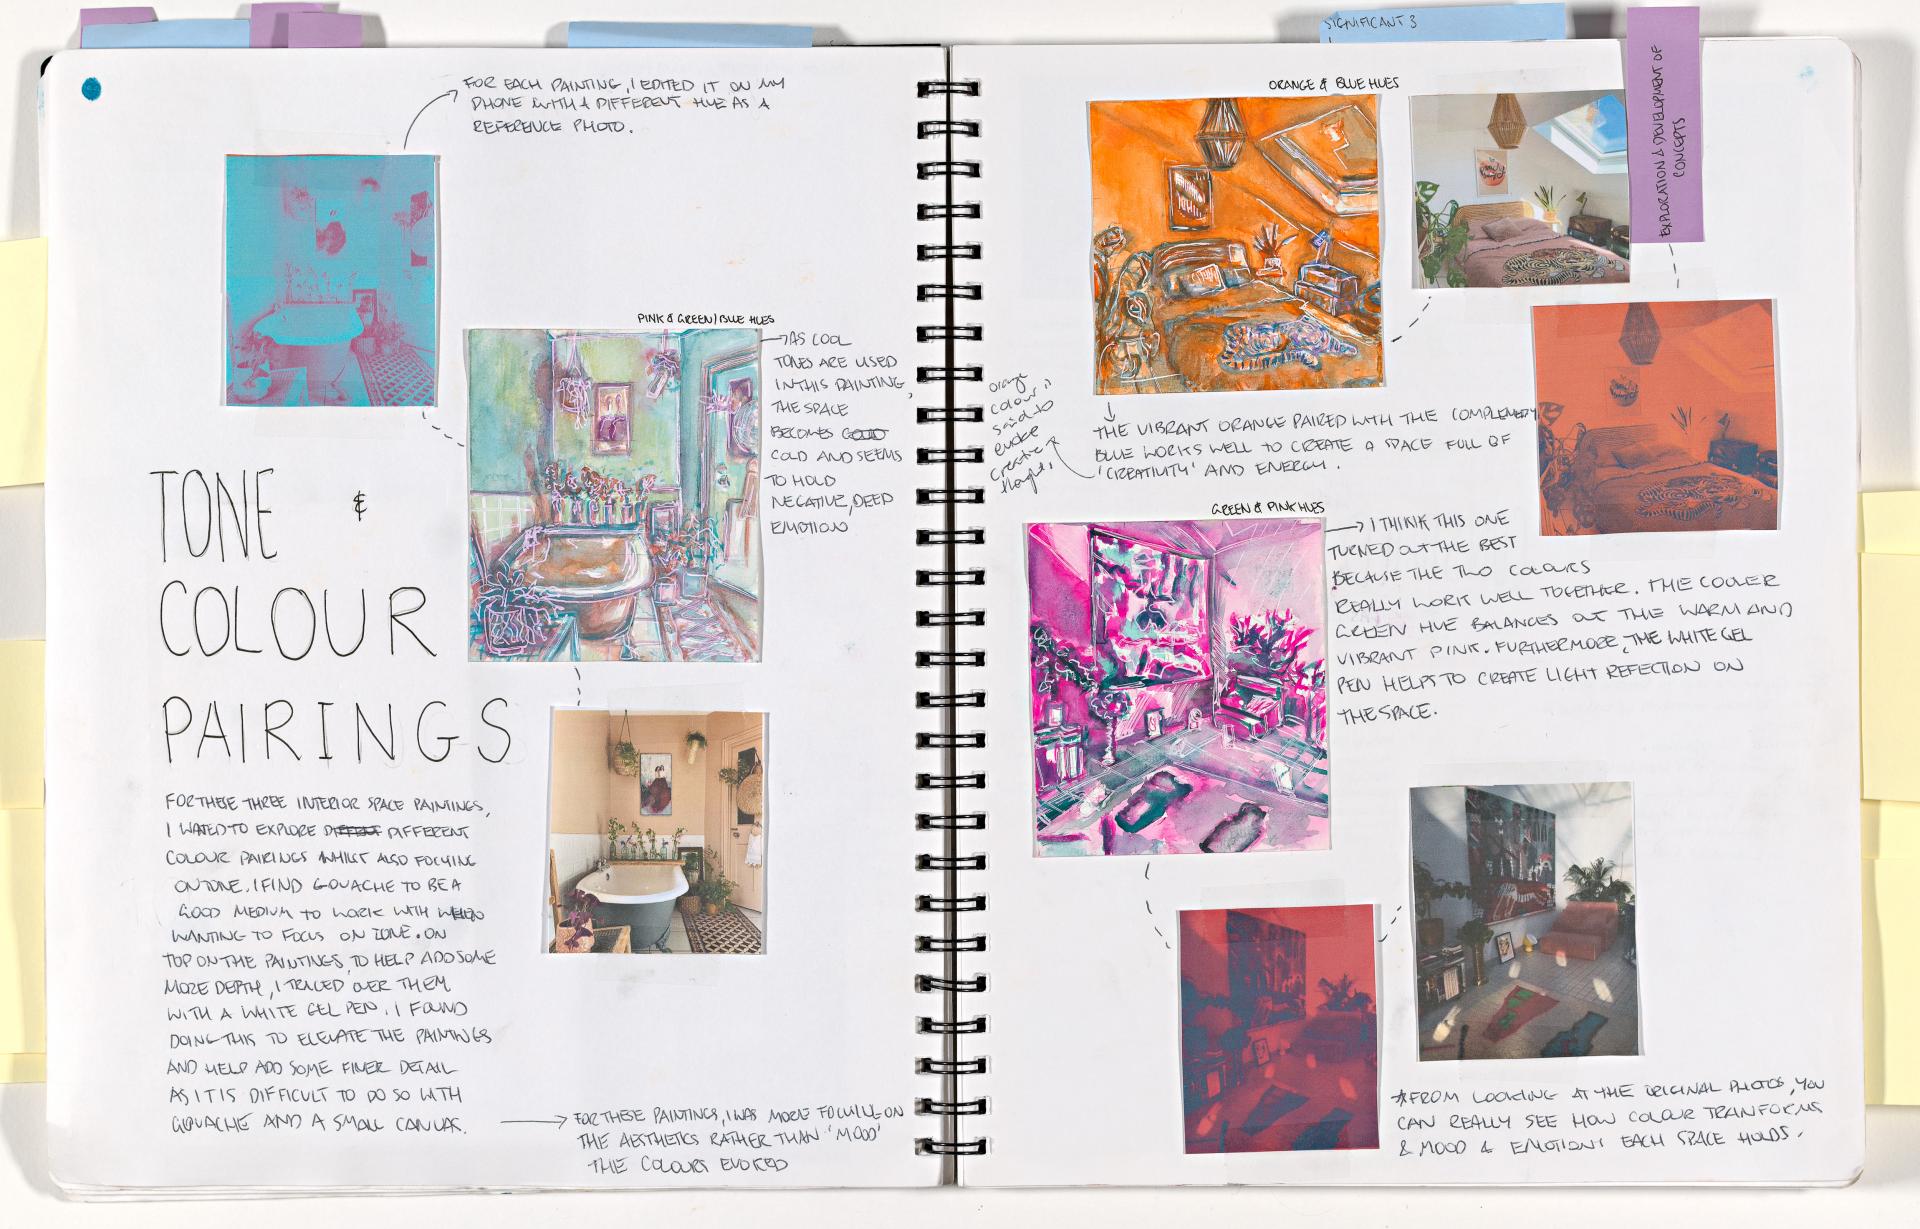 SIGNIFICANT 3
EXPLORATION & DEVELOPMENT OF
CONCEPTS
FOR EACH PAINTING, I EDITED IT ON MY
PHONE WITH A DIFFERENT HUE AS A
REFERENCE PHOTO.
PINK & GREEN/BLUE HUES
AS COOL
TONES ARE USED
IN THIS PAINTING,
THE SPACE
BECOMES
COLD AND SEEMS
TO HOLD
NEGATIVE, DEED
EMOTION
TONE &
COLOUR
PAIRINGS
FOR THESE THREE INTERIOR SPACE PAINTINGS,
I WATED TO EXPLORE DIFFERENT
COLOUR PAIRINGS WHILST ALSO FOCUING
ON TONE. I FIND GOUACHE TO BE A
GOOD MEDIUM TO WORK WITH WHEN
WANTING TO FOCUS ON TONE. ON
TOP ON THE PAINTINGS, TO HELP ADD SOME
MORE DEPTH, I TRACED OVER THEM
WITH A WHITE GEL PEN. I FOUND
DOING THIS TO ELEVATE THE PAINTINGS
AND HELP ADD SOME FINER DETAIL
AS IT IS DIFFICULT TO DO SO WITH
GOUACHE AND A SMALL CANVAS.
FOR THESE PAINTINGS, I WAS MORE FOCUING ON
THE AESTHETICS RATHER THAN 'MOOD'
THE COLOURS EVOKED
ORANGE & BLUE HUES
orange
colour is
said to
evoke
creative
thoughts
THE VIBRANT ORANGE PAIRED WITH THE
BLUE WORKS WELL TO CREATE A SPACE FULL OF
'CREATIVITY' AND ENERGY.
GREEN & PINK HUES
I THINK THIS ONE
TURNED OUT THE BEST
BECAUSE THE TWO COLOURS
REALLY WORK WELL TOGETHER. THE COOLER
GREEN HUE BALANCES OUT THE WARM AND
VIBRANT PINK. FURTHERMORE, THE WHITE GEL
PEN HELPS TO CREATE LIGHT REFECTION ON
THE SPACE.
*FROM LOOKING AT THE ORIGINAL PHOTOS, YOU
CAN REALLY SEE HOW COLOUR TRANFORMS
& MOOD & EMOTIONS EACH SPACE HOLDS.